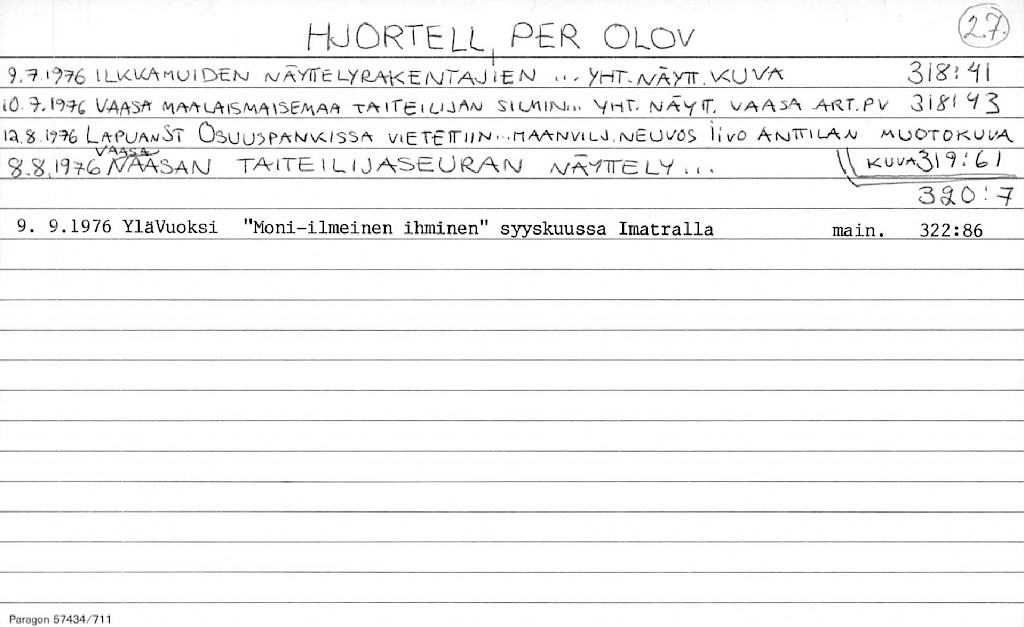 HJORTELL, PER OLOV 27.
9.7.1976 ILKKA MUIDEN NÄYTTELYRAKENTAJIEN ... YHT. NÄYTT. KUVA 318:41
10.7.1976 VAASA MAALAISMAISEMAA TAITEILIJAN SILMIN... YHT. NÄYTT. VAASA ART.PV 318:43
12.8.1976 LAPUANST OSUUSPANKISSA VIETETTIIN... MAANVILJ.NEUVOS IIVO ANTTILAN MUOTOKUVA
KUVA 319:61
8.8.1976 VAASA VAASAN TAITEILIJASEURAN NÄYTTELY ...
320:7
9. 9.1976 YläVuoksi "Moni-ilmeinen ihminen" syyskuussa Imatralla main. 322:86
Paragon 57434/711